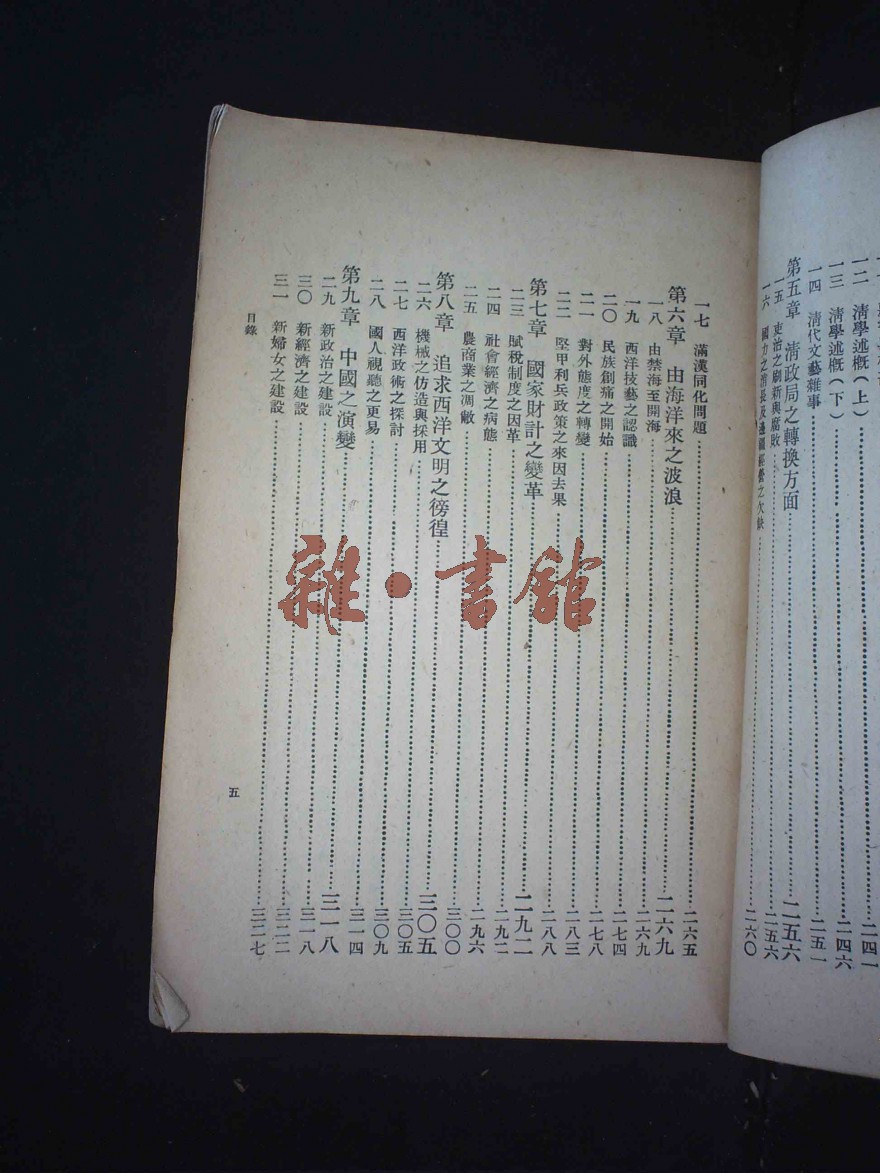 一二 清學述概(上)……二四一
一三 清學述概(下)……二四六
一四 清代文藝雜事……二五一
第五章 清政局之轉換方面……二五六
一五 吏治之刷新與腐敗……二五六
一六 國力之消長及邊疆經營之欠缺……二六〇
一七 滿漢同化問題……二六五
第六章 由海洋來之波浪……二六九
一八 由禁海至開海……二六九
一九 西洋技藝之認識……二七四
二〇 民族創痛之開始……二七八
二一 對外態度之轉變……二八三
二二 堅甲利兵政策之來因去果……二八八
第七章 國家財計之變革……二九二
二三 賦稅制度之因革……二九二
二四 社會經濟之病態……二九六
二五 農商業之凋敝……三〇〇
第八章 追求西洋文明之徬徨……三〇五
二六 機械之仿造與採用……三〇五
二七 西洋政術之探討……三〇五
二八 國人視聽之更易……三〇九
第九章 中國之演變……三一八
二九 新政治之建設……三一四
三〇 新經濟之建設……三一八
三一 新婦女之建設……三二二
三二七
目錄
五
雜·書館